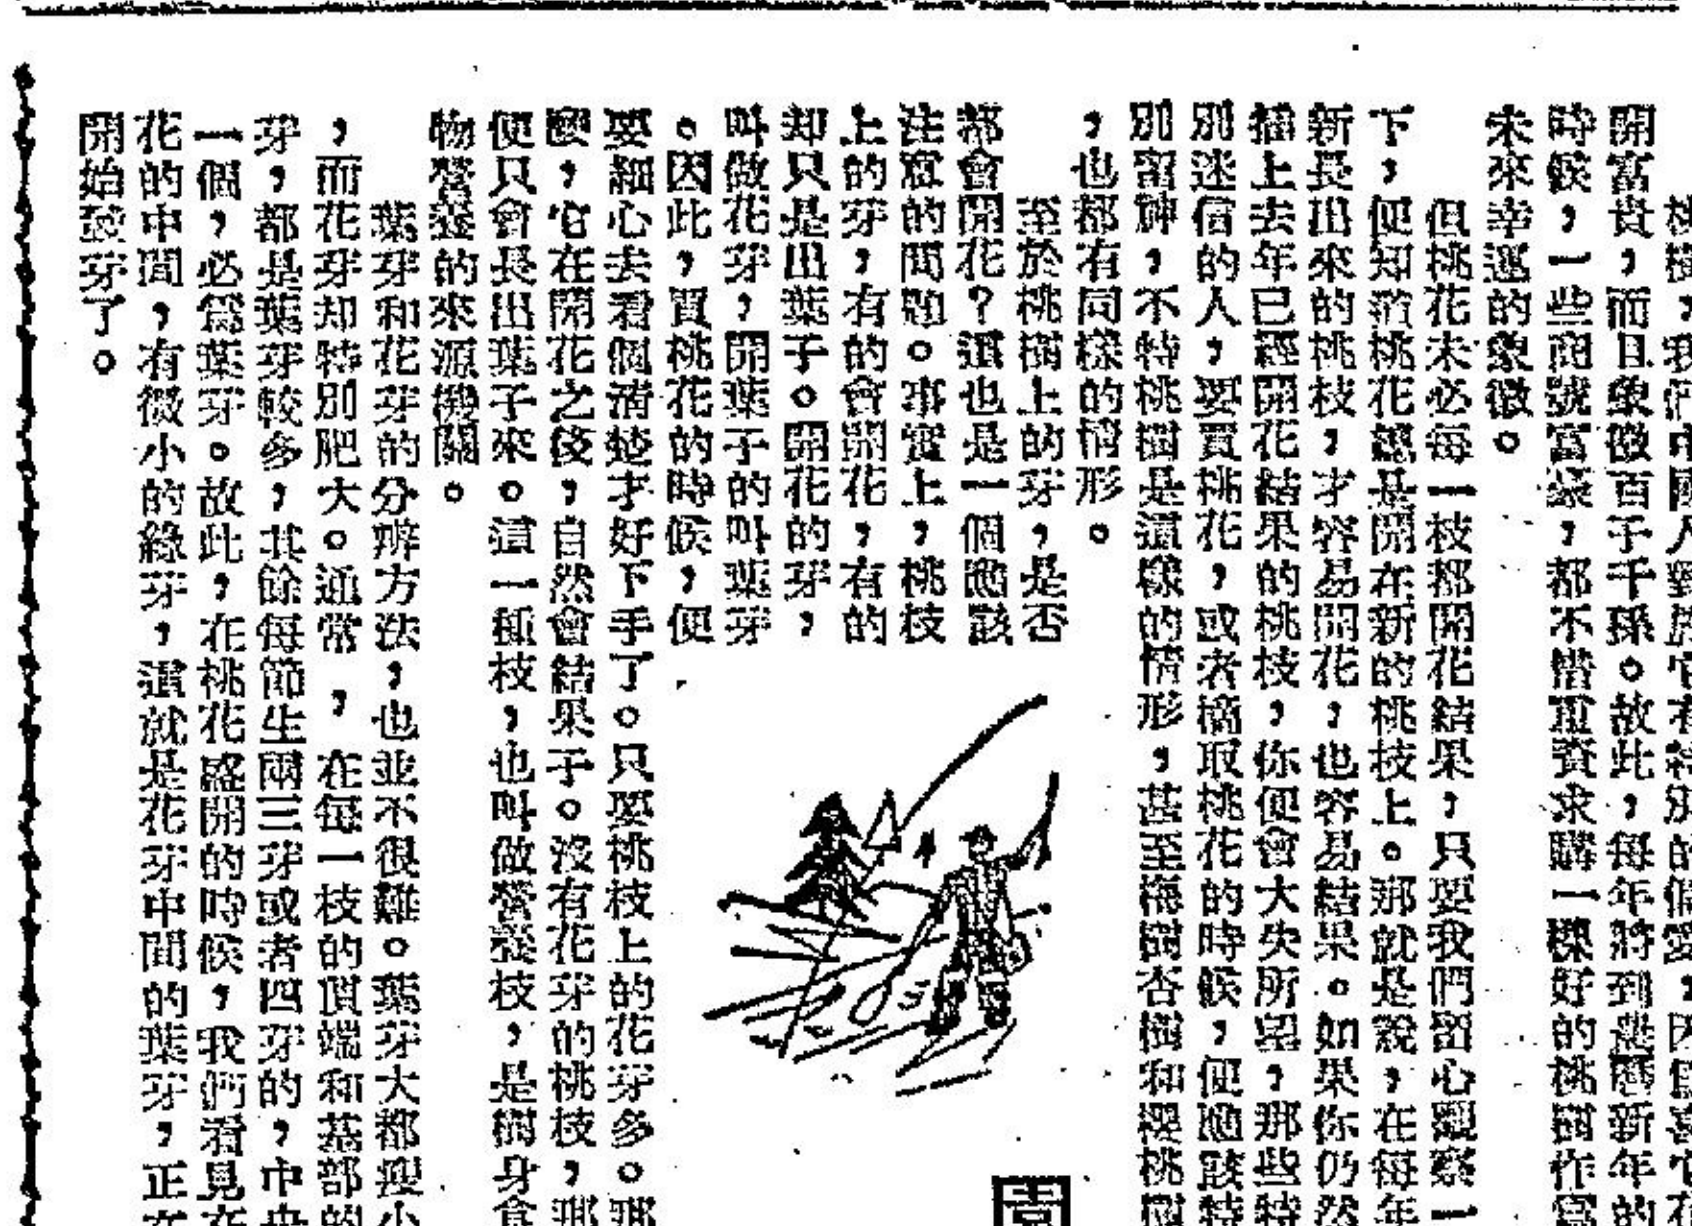 桃樹，我們中國人對於它有特別的偏愛，因爲喜它花
開富貴，而且象徵百子千孫。故此，每年將到農曆新年的
時候，一些商號富豪，都不惜重資求購一棵好的桃樹作富
未來幸運的象徵。
但桃花未必每一枝都開花結果，只要我們留心觀察一
下，便知道桃花總是開在新的桃枝上。那就是說，在每年
新長出來的桃枝，才容易開花，也容易結果。如果你仍然
插上去年已經開花結果的桃枝，你便會大失所望，那些特
別迷信的人，要買桃花，或者摘取桃花的時候，便應該特
別留神，不特桃樹是這樣的情形，甚至梅樹杏樹和櫻桃樹
，也都有同樣的情形。
至於桃樹上的芽，是否
都會開花？這也是一個應該
注意的問題。事實上，桃枝
上的芽，有的會開花，有的
却只是出葉子。開花的芽，
叫做花芽，開葉子的叫葉芽
。因此，買桃花的時候，便
要細心去看個清楚才好下手了。只要桃枝上的花芽多。那
麼，它在開花之後，自然會結果子。沒有花芽的桃枝，那
便只會長出葉子來。這一種枝，也叫做營養枝，是樹身食
物營養的來源機關。
葉芽和花芽的分辨方法，也並不很難。葉芽大都瘦小
，而花芽却特別肥大。通常，在每一枝的頂端和基部的
芽，都是葉芽較多，其餘每節生兩三芽或者四芽的，中央
一個，必爲葉芽。故此，在桃花盛開的時候，我們看見在
花的中間，有微小的綠芽，這就是花芽中間的葉芽，正在
開始發芽了。